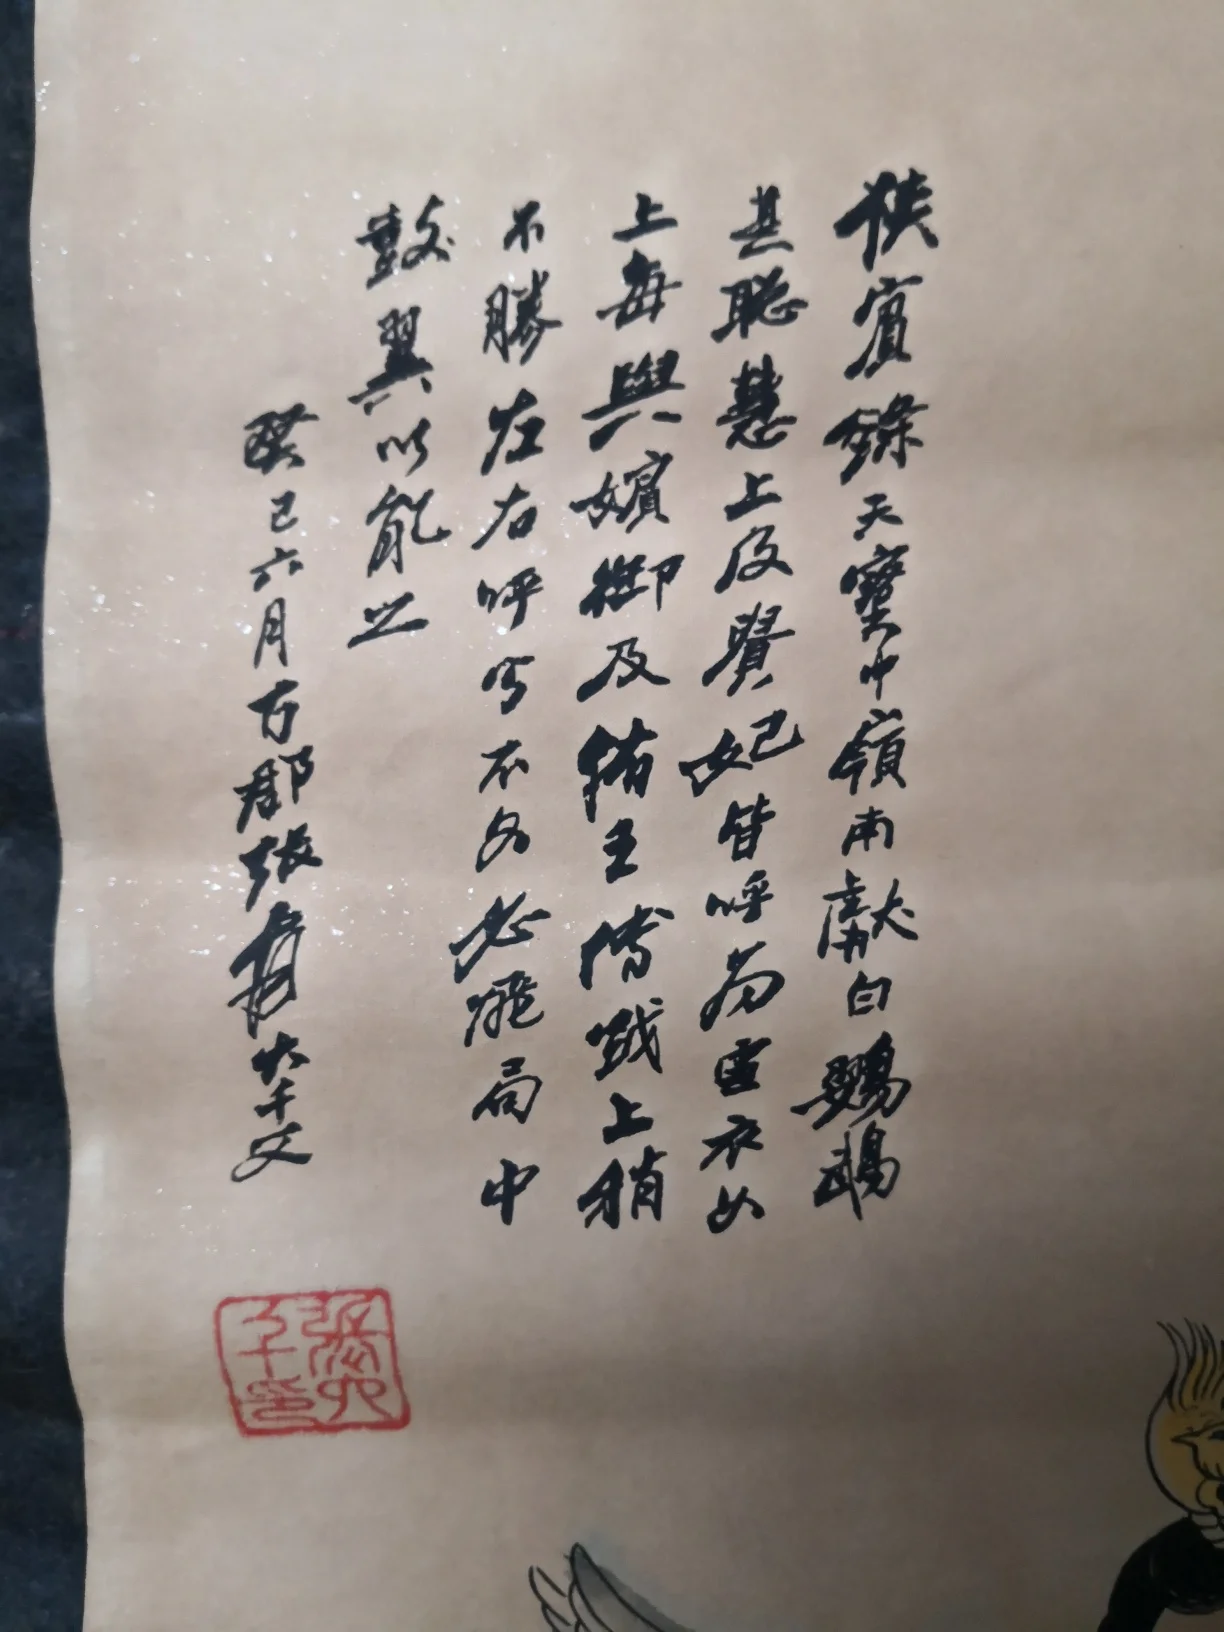 俠賓錄天寶中嶺南獻白鸚鵡
甚聰慧上及貴妃皆呼為雪衣女
上每與嬪御及諸王博戲上稍
不勝左右呼雪衣女必飛局中
鼓翼以亂之
癸巳六月蜀郡張爰大千父
張大千印